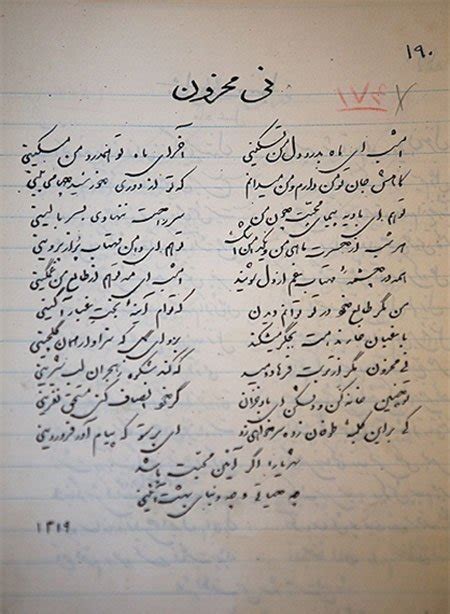 ۱۹۰
نی محزون
امشب ای ماه بدرد دل من تسکینی آخر ای ماه تو همدرد من مسکینی
کاهش جان تو من دارم و من میدانم که تو از دوری خورشید چها می بینی
تو هم ای بادیه پیمای محبت چون من سر راحت ننهادی بسر بالینی
هر شب از حسرت ماهی من و یک دامن اشک تو هم ای دامن مهتاب پر از پروینی
همه در چشمهٔ مهتاب غم از دل شویند امشب ای مه تو هم از طالع من غمگینی
من مگر طالع خود در تو توانم دیدن که توام آینهٔ بخت غبار آگینی
باغبان خار ندامت بجگر میشکند برو ای گل که سزاوار همان گلچینی
نی محزون مگر از تربت فرهاد دمید که کند شکوه ز هجران لب شیرینی
تو چنین خانه کن و دلشکن ای باد خزان گر خود انصاف کنی مستحق نفرینی
کی بر این کلبهٔ طوفان زده سر خواهی زد ای پرستو که پیام آور فروردینی
شهریارا اگر آئین محبت باشد
چه حیاتی و چه دنیای بهشت آئینی
۱۳۱۹